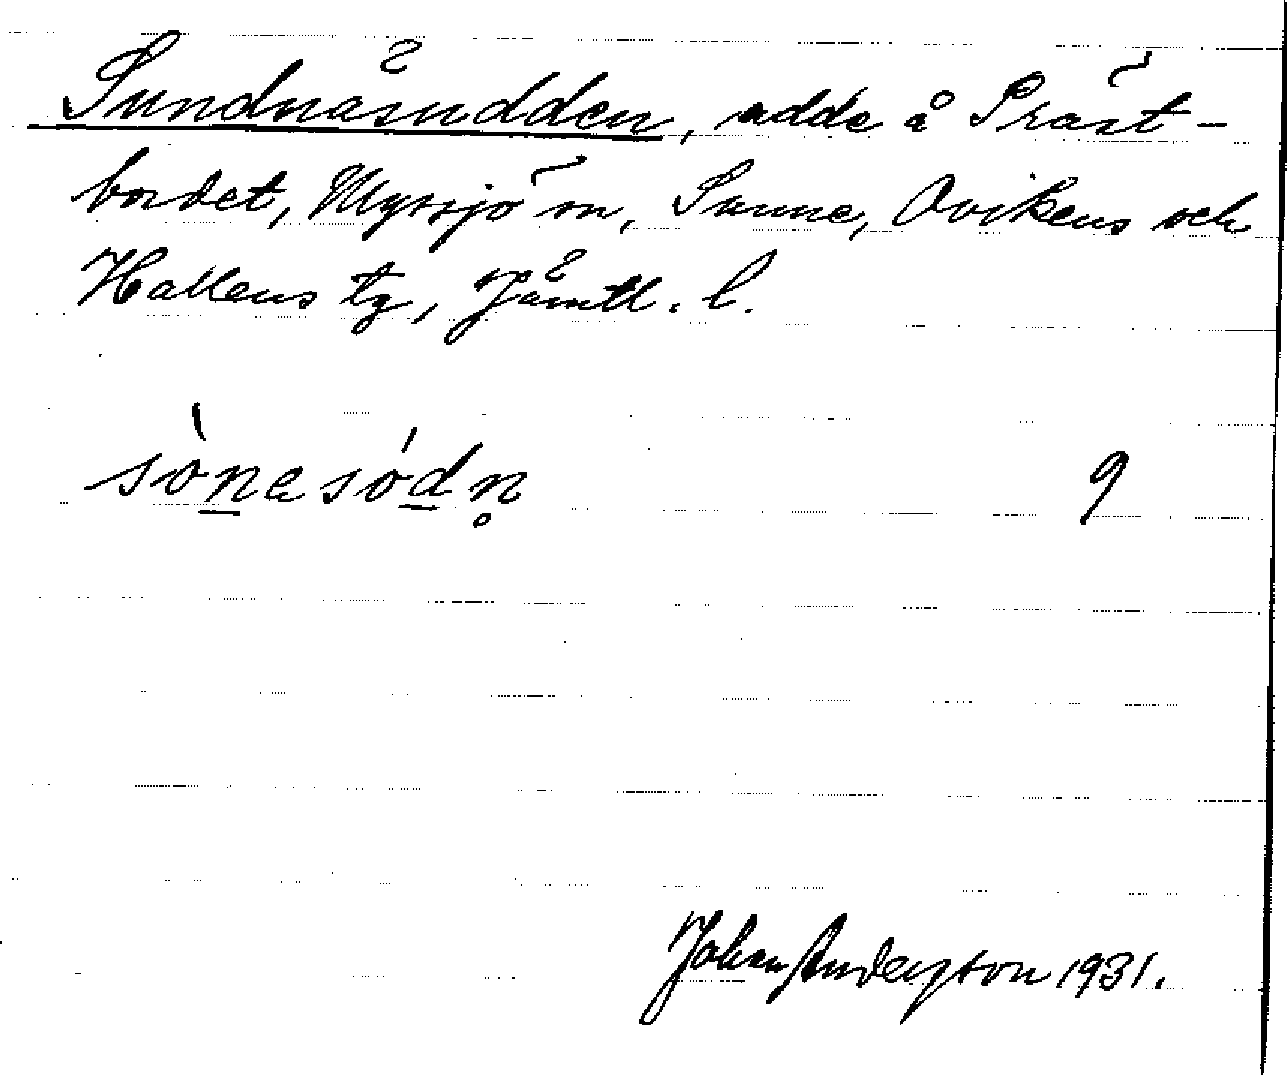 Sundnäsudden, udde å Präst-
bordet, Myssjö sn, Sunne, Ovikens och
Hallens tg, Jämtl. l.
9
Johan Anderson 1931.